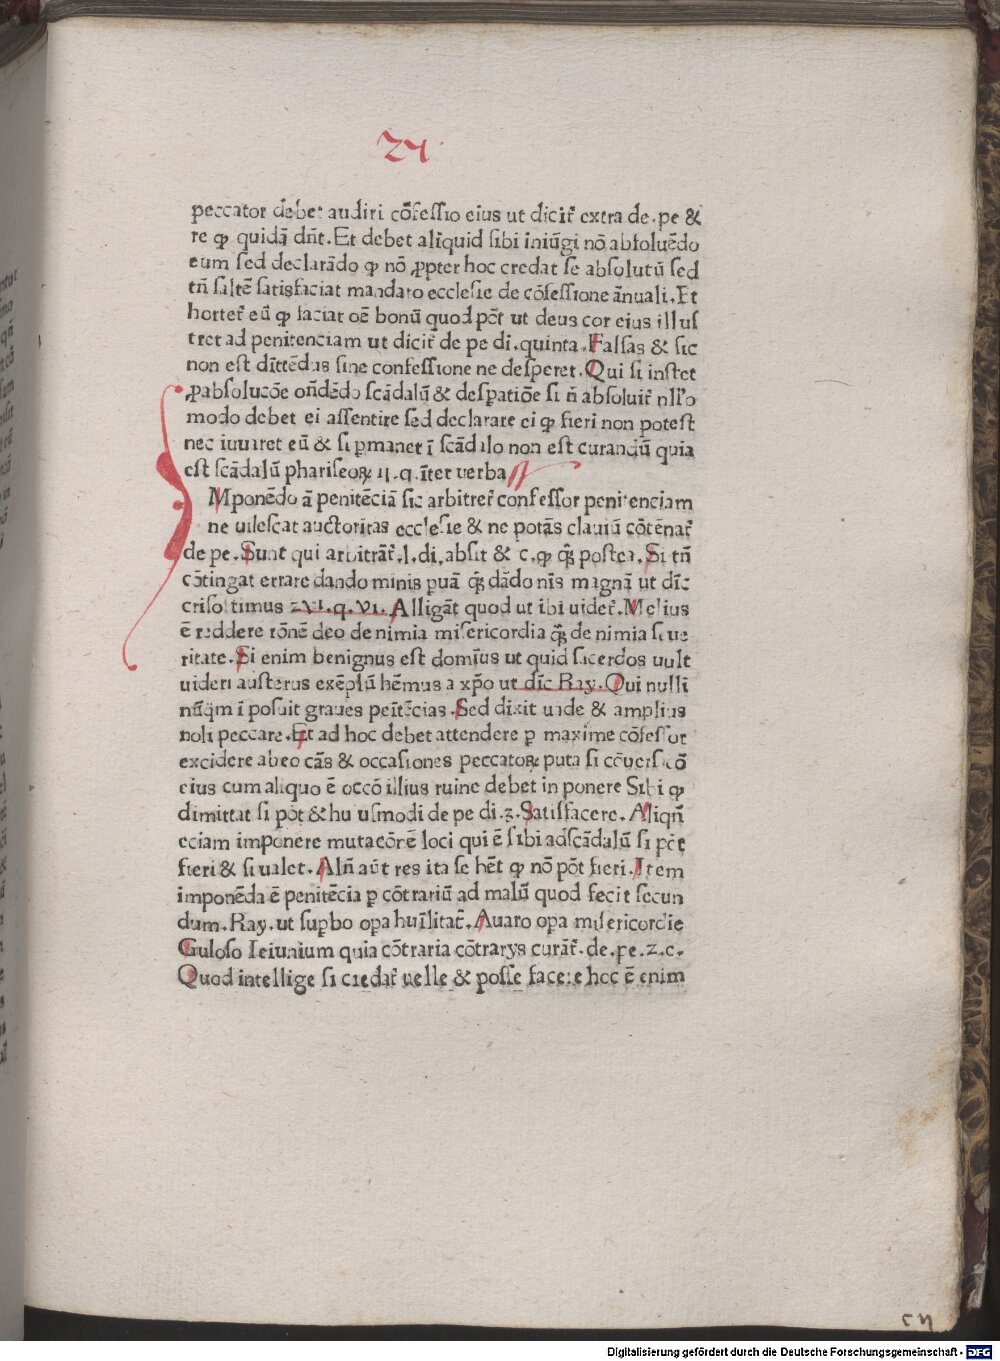 24
peccator debet audiri cōfessio eius ut dicit̄ extra de.pe &
re ꝙ quidā dn̄t. Et debet aliquid sibi iniūgi nō absoluēdo
eum sed declarādo ꝙ nō ꝓpter hoc credat se absolutū sed
tn̄ saltē satisfaciat mandato ecclesie de cōfessione ānuali. Et
hortet̄ eū ꝙ faciat oē bonū quod pōt ut deus cor eius illus
tret ad penitenciam ut dicit̄ de pe di. quinta. Falsas & sic
non est dīttēdus sine confessione ne desperet. Qui si instet
ꝓ absolucōe on̄dēdo scādalū & despatiōe si n̄ absoluit̄ nll'o
modo debet ei assentire sed declarare ei ꝙ fieri non potest
nec iuuaret eū & si ꝑmanet ī scādalo non est curandū quia
est scādalū phariseoꝝ 11.q. īter uerba
Mponēdo ā penitēciā sic arbitret̄ confessor penitenciam
ne uilescat auctoritas ecclesie & ne potās clauiū cōtēnat̄
de pe. Sunt qui arbitrāt̄.l.di.absit & c.ꝙ q̄s postea. Si tn̄
cōtingat errare dando minis ꝑuā q̄s dādo nīs magnā ut dīc
crisostimus zvi.q.vi. Alligāt quod ut ibi uidet̄. Melius
ē reddere rōnē deo de nimia misericordia q̄s de nimia seue
ritate. Si enim benignus est domīus ut quid sacerdos uult
uideri austerus exēplū hēmus a xp̄o ut dīc Ray. Qui nulli
nūq̄m ī posuit graues peītēcias. Sed dixit uade & amplius
noli peccare. Et ad hoc debet attendere ꝑ maxime cōfessor
excidere ab eo cās & occasiones peccatoꝝ puta si cōuersacō
eius cum aliquo ē occō illius ruine debet in ponere Sibi ꝙ
dimittat si pōt & hu usmodi de pe di.3. Satisfacere. Aliqn̄
eciam imponere mutacōrē loci qui ē sibi ad scādalū si pōt
fieri & si ualet. Aln̄ aūt res ita se hēt ꝙ nō pōt fieri. Item
imponēda ē penitēcia ꝑ cōtrariū ad malū quod fecit secun
dum. Ray. ut supbo opa huīlitat̄. Auaro opa misericordie
Guloso Ieiunium quia cōtraria cōtrarys curāt̄. de.pe.z.c.
Quod intellige si credat̄ uelle & posse facere hoc ē enim
Digitalisierung gefördert durch die Deutsche Forschungsgemeinschaft - DFG